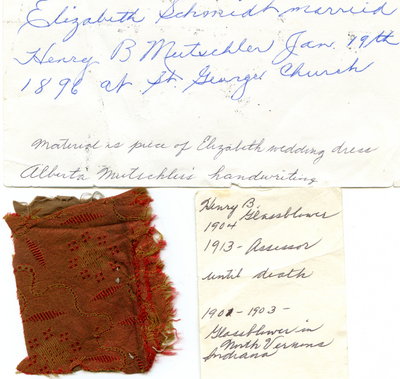 Elizabeth Schmidt married
Henry B Mutschler Jan. 19th
1896 at St. Georges Church
Material is piece of Elizabeth wedding dress
Alberta Mutschler's handwriting
Henry B.
Glassblower
1904
1913 - Assessor
until death
1901 - 1903 -
Glassblower in
North Vernons
Indiana